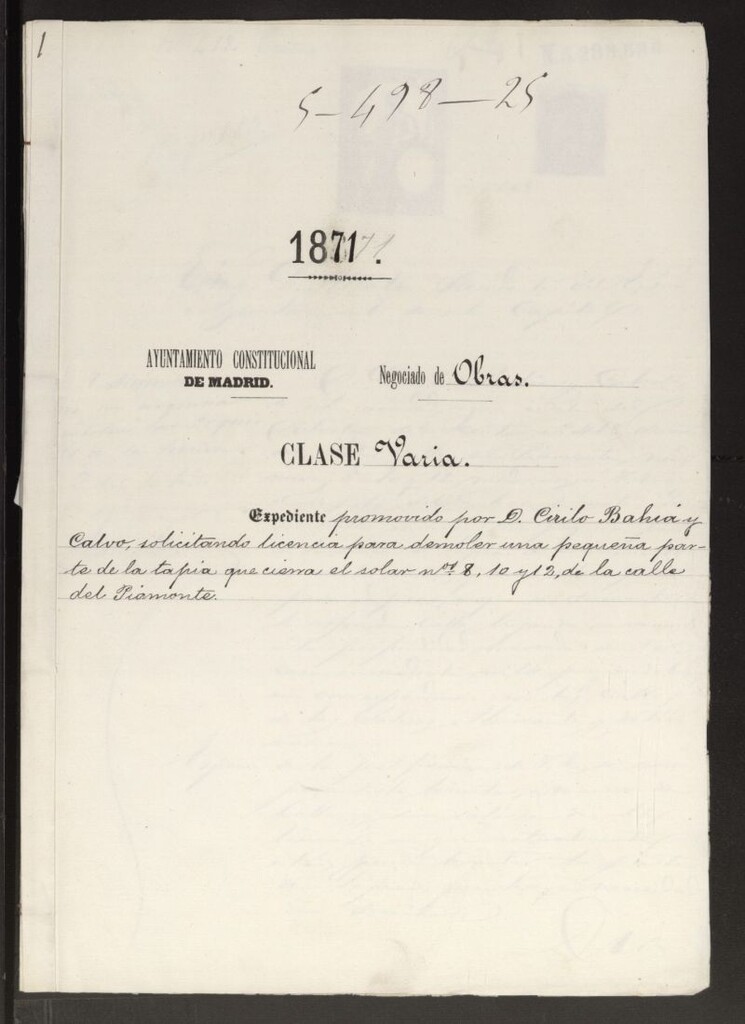 1
5-498-25
1871.
AYUNTAMIENTO CONSTITUCIONAL
DE MADRID.
Negociado de Obras.
CLASE Varia.
Expediente promovido por D. Cirilo Bahiá y
Calvo, solicitando licencia para demoler una pequeña par-
te de la tapia que cierra el solar nos. 8, 10 y 12, de la calle
del Piamonte.